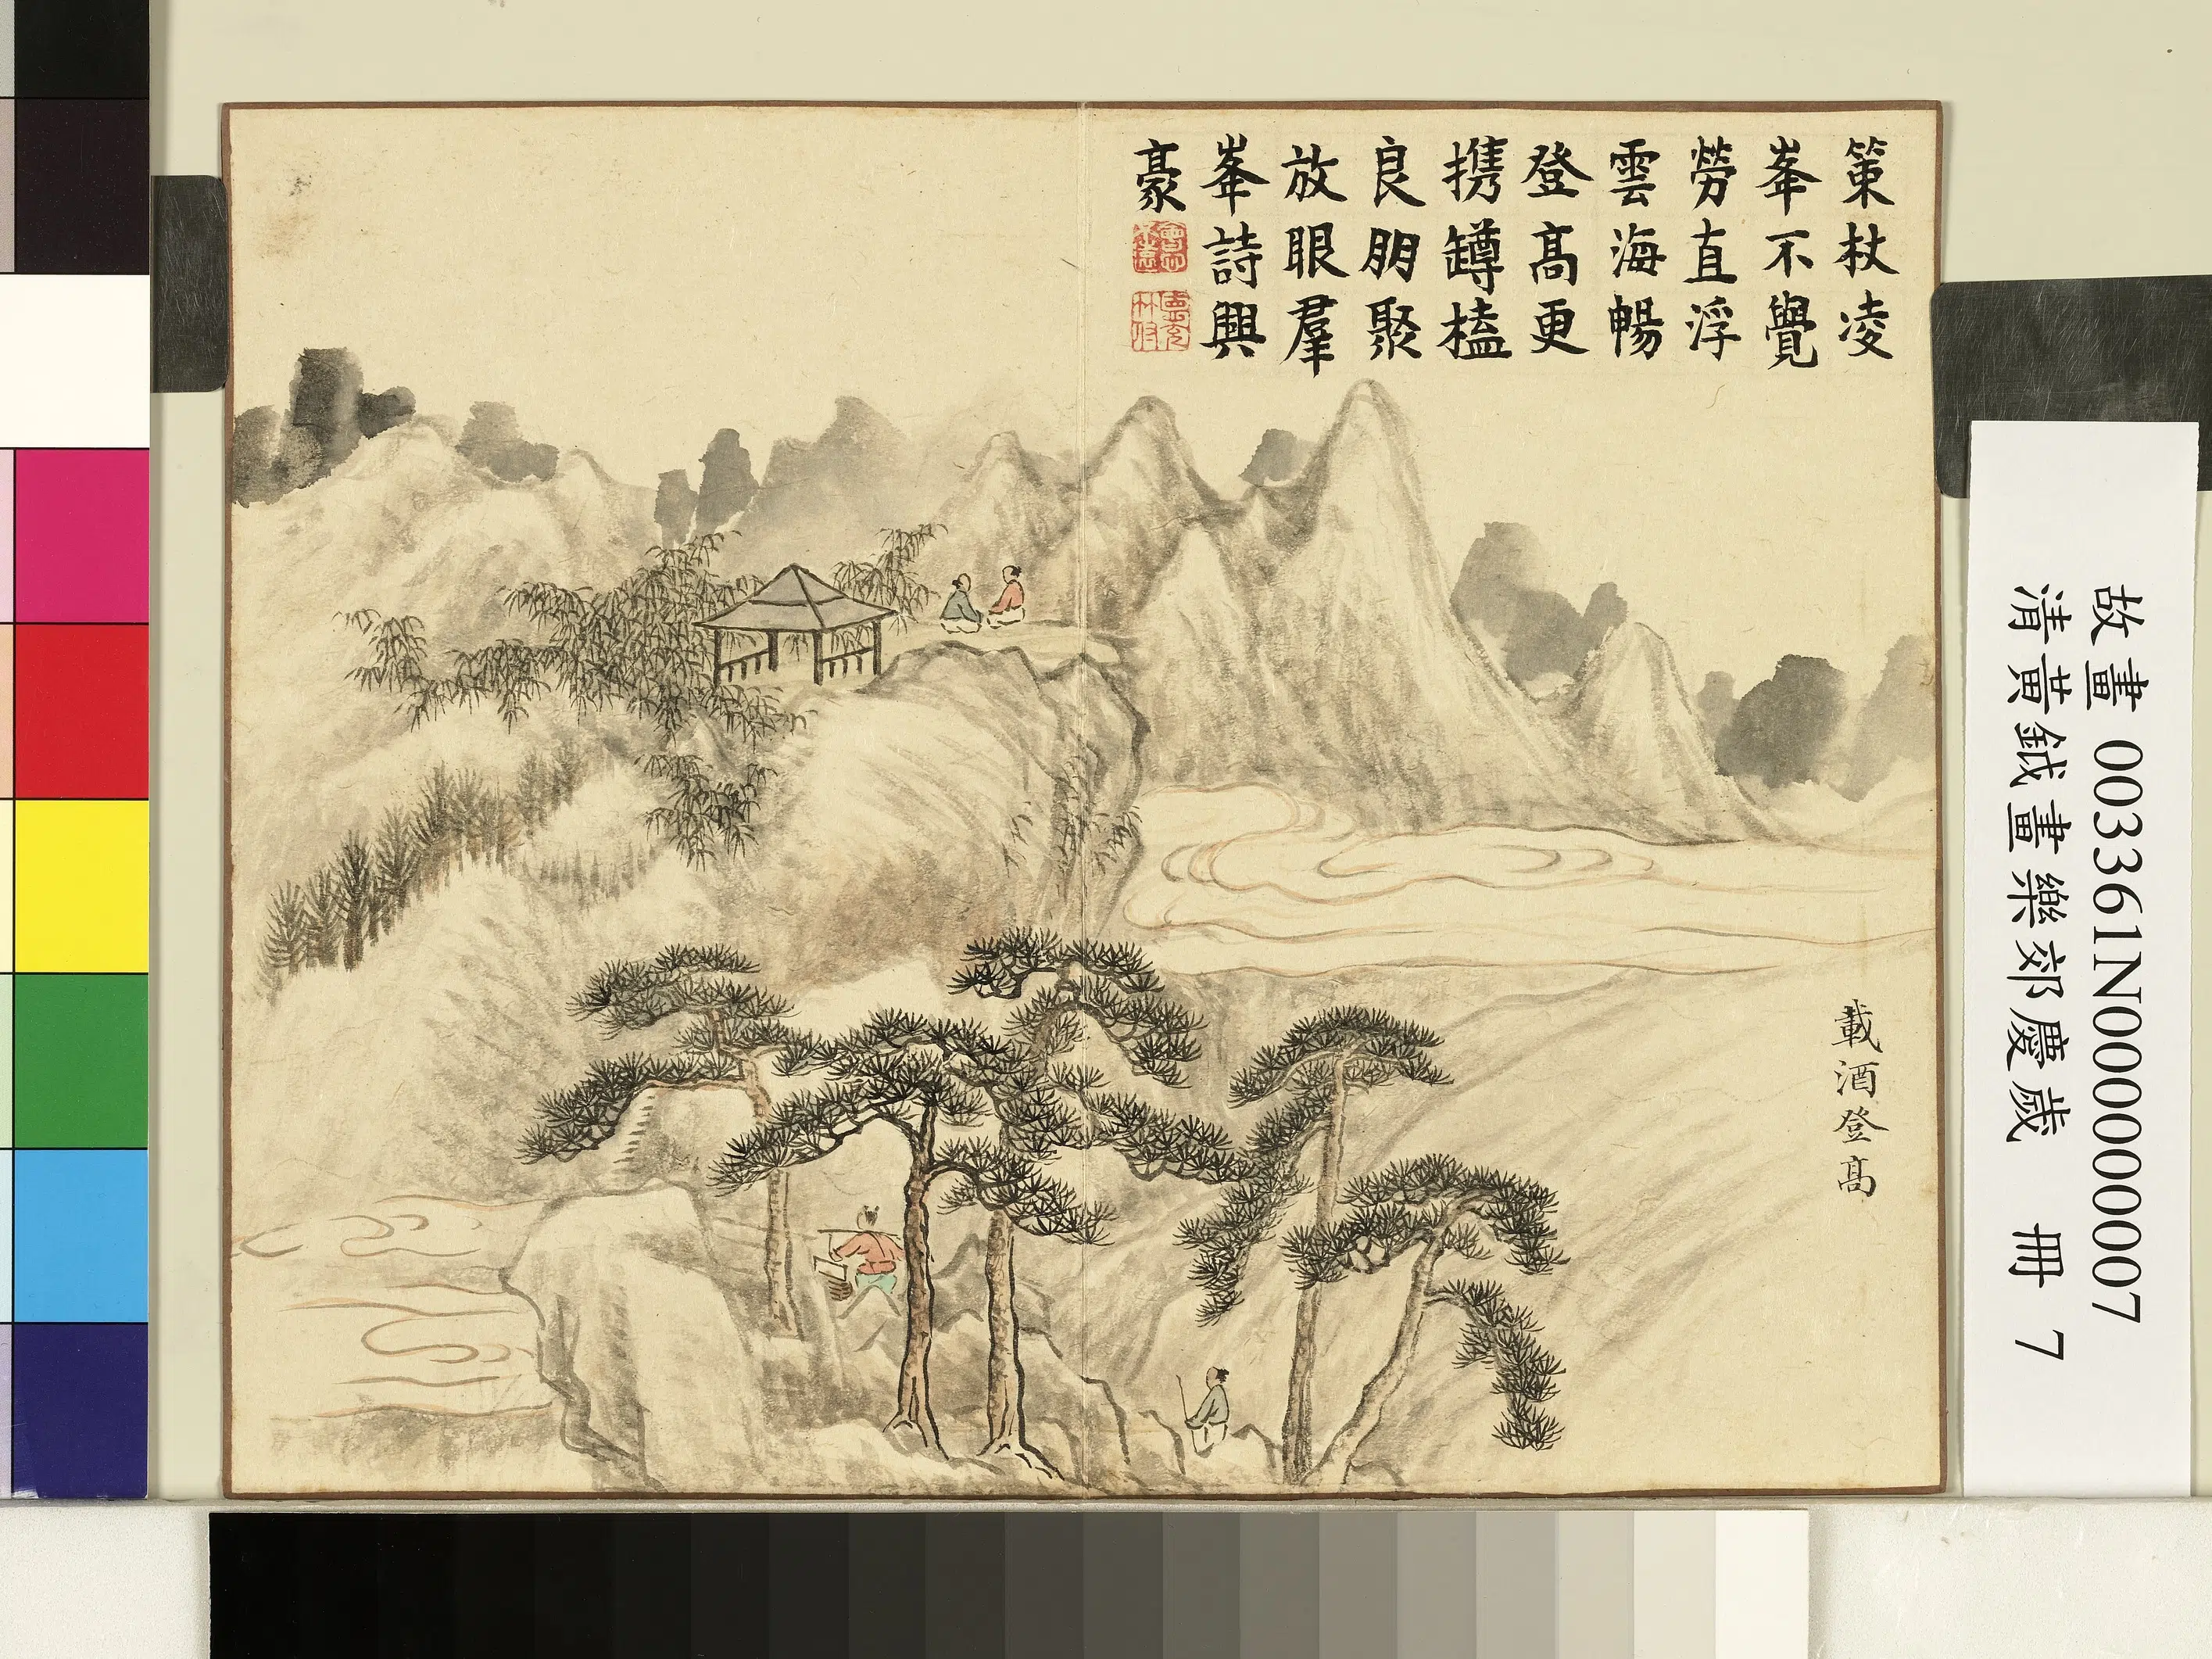 策杖凌
峯不覺
勞直浮
雲海暢
登高更
携罇榼
良朋聚
放眼羣
峯詩興
豪
載酒登高
故畫 003361N000000007
清黃鉞畫樂郊慶歲 冊 7